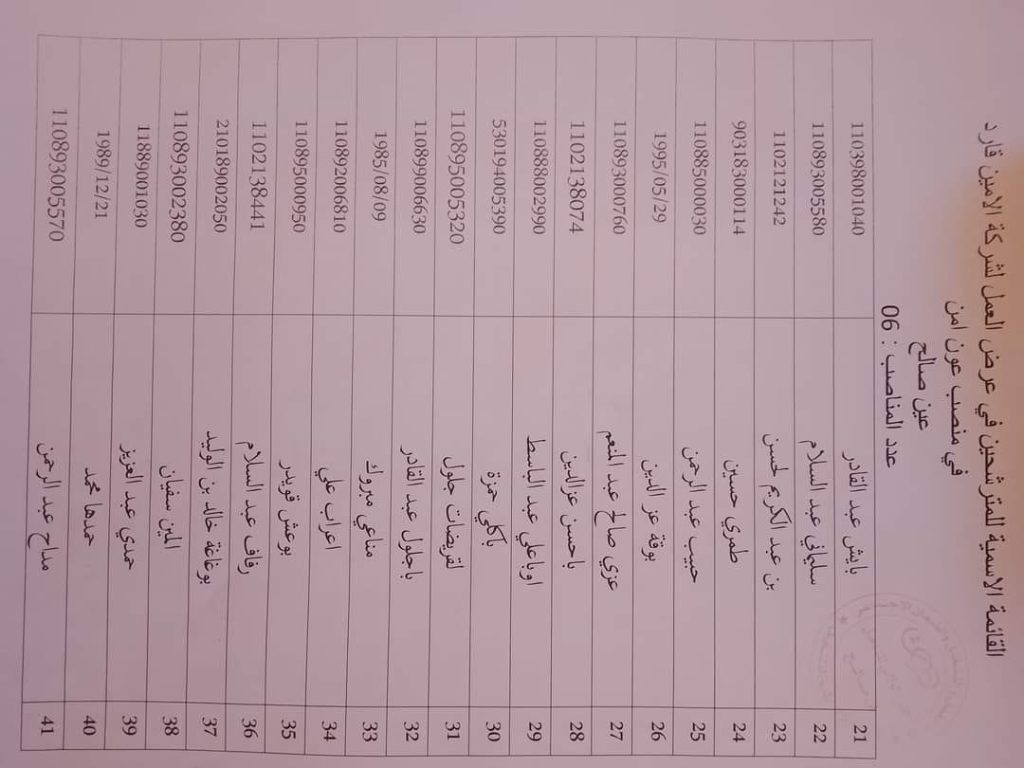 القائمة الاسمية للمترشحين في عرض العمل لشركة الامين قارد
في منصب عون امن
عين صالح
عدد المناصب : 06
21 بايش عبد القادر 110398001040
22 سليماني عبد السلام 110893005580
23 بن عبد الكريم لحسن 1102121242
24 طمري حسين 903183000114
25 حبيب عبد الرحمن 110885000030
26 بوقة عز الدين 1995/05/29
27 عزي صالح عبد المنعم 110893000760
28 باحسن عزالدين 1102138074
29 اوباعلي عبد الباسط 110888002990
30 باكلي حمزة 530194005390
31 لقريضات جلول 110895005320
32 باجلول عبد القادر 110899006630
33 مناعي مبروك 1985/08/09
34 اعراب علي 110892006810
35 بوعش قويدر 110895000950
36 رفاف عبد السلام 1102138441
37 بوغاغة خالد بن الوليد 210189002050
38 المين سفيان 110893002380
39 حمدي عبد العزيز 11889001030
40 حمدها محمد 1989/12/21
41 مداح عبد الرحمن 110893005570